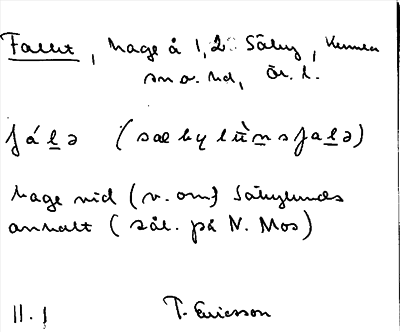 Fallet, hage å 1,2 Säby, Kumla
sn o. hd, Ör. l.
fál̲ə (sæbylùn̲sfal̲ə)
hage vid (v. om) Säbylunds
anhalt (söt. på N. Mos)
11. 1 T. Ericsson